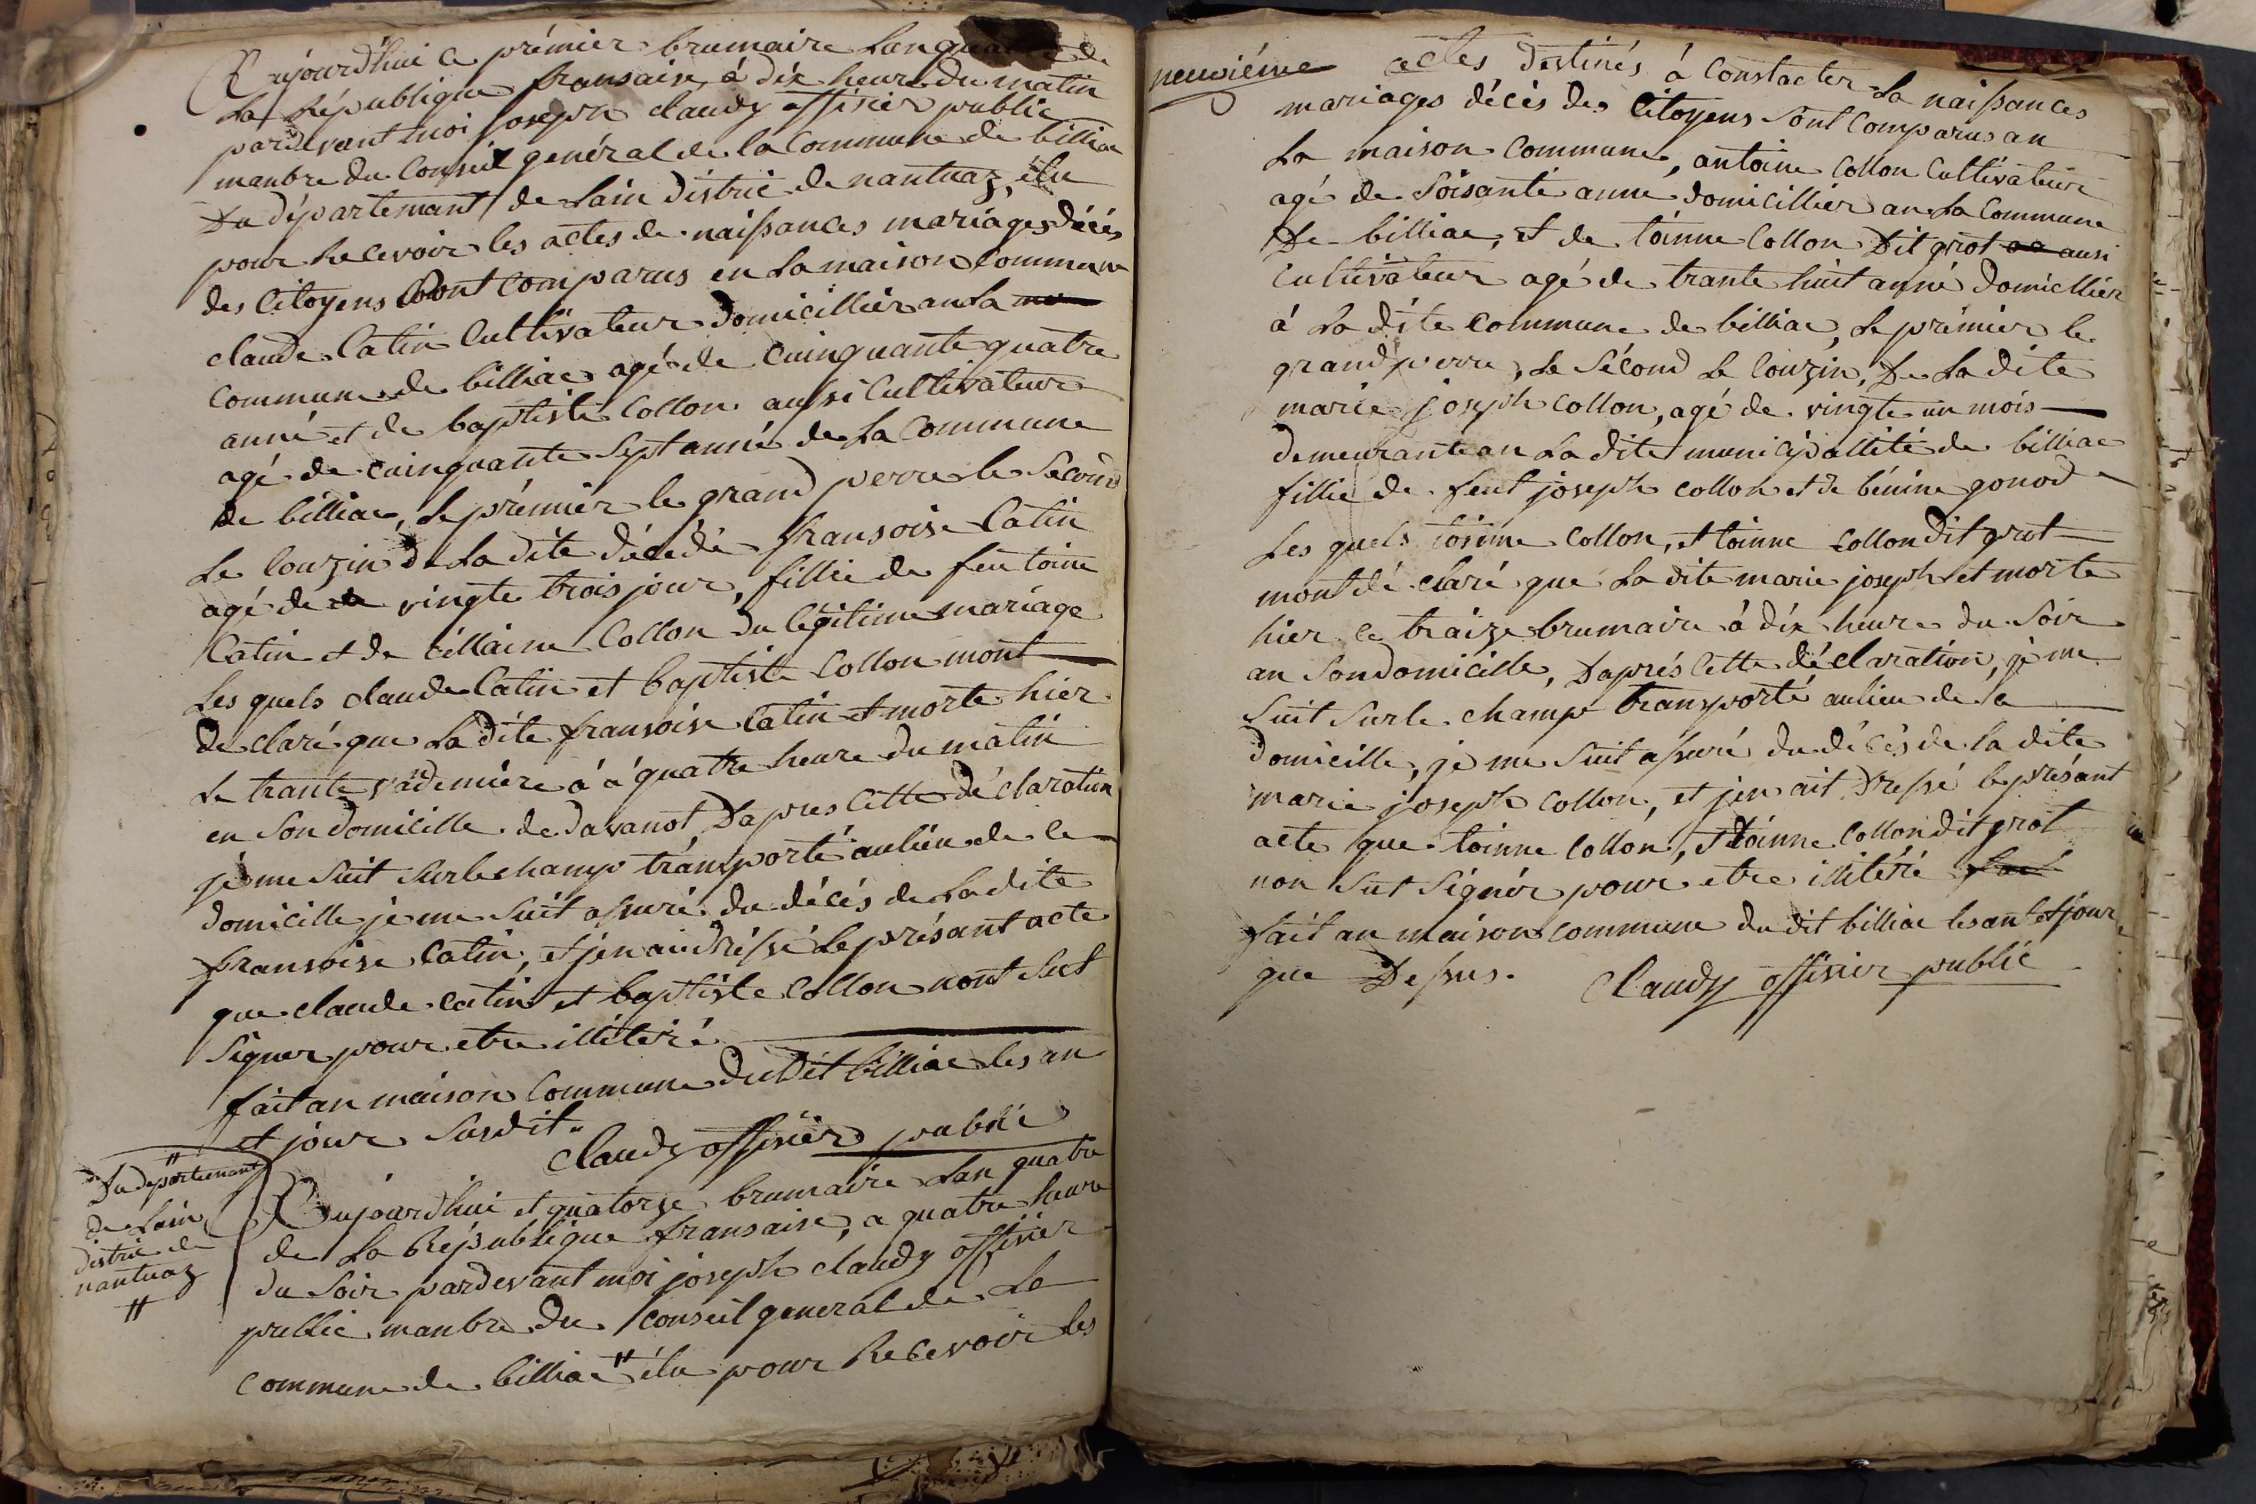 Aujourd'hui ce prémier brumaire Lan quatre de
La République fransaise, á dix heure du matin
pardevant moi joseph claudy offisier public
manbre du Conseil genéral de la Commune de billiac
Du département de Lain distric de nantuaz, élu
pour Recevoir les actes de naissances mariages décés
des Citoyens Sont Comparus en La maison Commune
claude Catin Cultivateur domicillier an La
Commune de billiac agé de cuinquante quatre
anné et de baptiste Collon aussi Cultivateur
agé de cuinquante Sept anné de La Commune
De billiac, Le prémier le grand perre le Second
Le Couzin de La dite décédé fransoise Catin
agé de vingte trois jour, fillie de feu toine
Catin et de Collon du légitime mariage
Les quels claude Catin et baptiste Collon mont
De claré que La dite fransoise Catin et morte hier
Le trante vademiére á á quatre heure du matin
en Son domicille de davanot, Daprès Cette déclaration
je me Suit Surle champ transporté au lieu de Ce
domicille je me Suit assuré du décés de La dite
fransoise Catin, et jen ai dréssé Le présant acte
que claude Catin et baptiste Collon nont Sut
Signer pour etre illitéré
fait an maison Commune du Dit billiac les an
et jour Susdit.
Claudy offisier public
Du departemant
de Lain
distric de
nantuaz
Aujourd'hui et quatorze brumaire Lan quatre
de La République fransaise, a quatre heure
du Soir pardevant moi joseph claudy offisier
public manbre du Conseil general de La
Commune de billiac élu pour Recevoir les
neuviéme
actes destinés á Constacter La naissances
mariages décès des Citoyens Sont Comparus an
La maison Commune, antoine Collon Cultivateur
agé de Soisante anne domicillier an La Commune
De billiac, et de toinne Collon Dit grot ausi
Cultivateur agé de trante huit anné domicillier
á La dite Commune de billiac, Le prémier le
grand perre, Le Sécond Le Couzin, De La dite
marie joseph Collon, agé de vingte un mois
demeurante an La dite municipallité de billiac
fillie de feut joseph collon et de bénine gonod
Les quels toinne Collon, et toinne Collon dit grot
mont dé claré que La dite marie joseph et morte
hier Ce traize brumaire á dix heure du Soir
an Son domicille, Daprés Cette déclaration, je me
Suit Surle champ transporté au lieu de Se
domicille, je me Suit assuré du décés de La dite
marie joseph Collon, et jen ait Dressé le présant
acte que toinne Collon, et toinne Collon dit grot
non Sut Signér pour etre illitéré
fait an maison commune du dit billiac les an et jour
que Dessus. Claudy offisier public